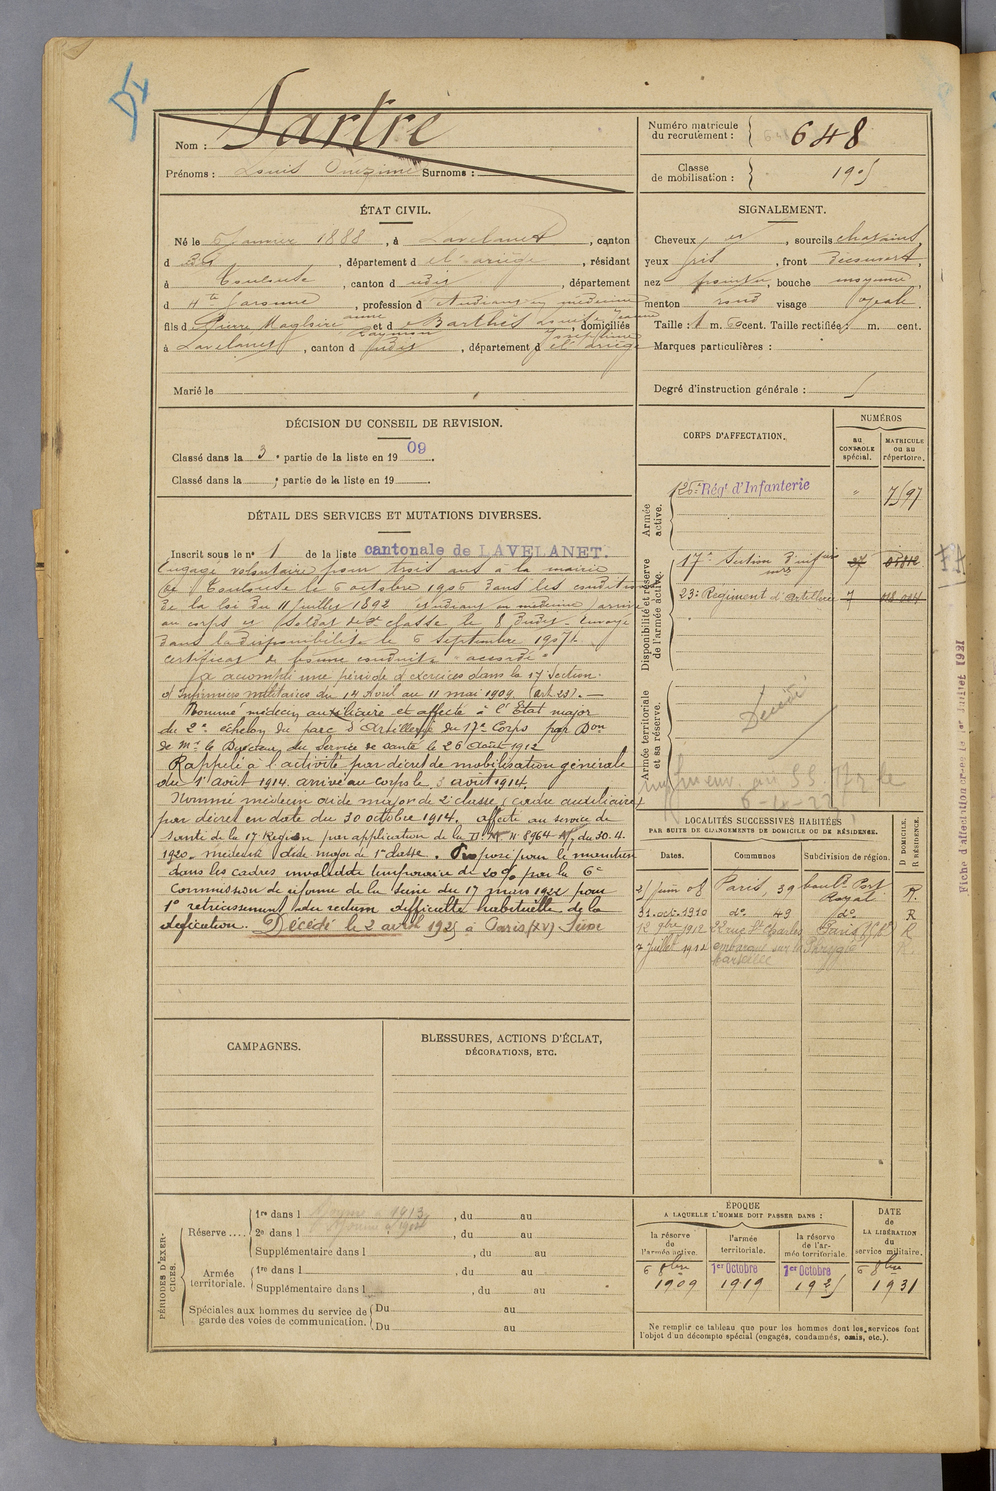 Sartre
Nom :
Prénoms : Louis Onezime Surnoms :
Numéro matricule du recrutement : 648
Classe de mobilisation : 1905
ÉTAT CIVIL.
Né le 6 Janvier 1888, à Lavelanet, canton
d dit, département d el'ariège, résidant
à Toulouse, canton d udit, département
d Hte Garonne, profession d Etudiant en médecine
fils d Pierre Magloire et d Barthès, domiciliés
à Lavelanet, canton d judit, département d el'ariège
Marié le
SIGNALEMENT.
Cheveux, sourcils chatains,
yeux gris, front découvert,
nez pointu, bouche moyenne,
menton rond visage ovale.
Taille : 1 m. cent. Taille rectifiée : m. cent.
Marques particulières :
Degré d'instruction générale : 5
DÉCISION DU CONSEIL DE REVISION.
Classé dans la 3e partie de la liste en 1909.
Classé dans la e partie de la liste en 19 .
DÉTAIL DES SERVICES ET MUTATIONS DIVERSES.
Inscrit sous le no 1 de la liste cantonale de LAVELANET.
Engagé volontaire pour trois ans à la mairie
de Toulouse le 6 octobre 1906 dans les conditions
de la loi du 11 juillet 1892 etudiant en médecine, arrivé
au corps et soldat de 2e classe le 8 dudit. Envoyé
dans la disponibilité le 6 septembre 1907.
certificat de bonne conduite "accordé"
a accompli une période d'exercices dans la 17e Section
d'Infirmiers militaires du 14 Avril au 11 mai 1909. (art. 23). —
Nommé médecin auxiliaire et affecté à l'État major
du 2e échelon du parc d'Artillerie du 17e Corps par Don
de Mr le Directeur du Service de santé le 26 Août 1912
Rappelé à l'activité par décret de mobilisation générale
du 1er août 1914. arrivé au corps le 3 août 1914.
Nommé médecin aide major de 2e classe (cadre auxiliaire)
par décret en date du 30 octobre 1914. affecté au service de
santé de la 17 Région par application de la D. M. N 8964 du 30.4.
1920. médecin aide major de 1re classe. Proposé pour le maintien
dans les cadres invalidité temporaire de 20% par la 6e
Commission de réforme de la Seine du 17 mars 1922 pour
1° retrécissement du rectum difficulté habituelle de la
défécation. Décédé le 2 avril 1925 à Paris (XV) Seine
CORPS D'AFFECTATION.
NUMÉROS
au CONTROLE spécial.
MATRICULE ou au répertoire.
Armée active.
126e Rég.t d'Infanterie " 7597
Disponibilité et réserve de l'armée active.
17e Section d'infirmiers
23e Régiment d'artillerie 7
Armée territoriale et sa réserve.
Décédé
LOCALITÉS SUCCESSIVES HABITÉES
PAR SUITE DE CHANGEMENTS DE DOMICILE OU DE RÉSIDENCE.
Dates. Communes Subdivision de région. D DOMICILE. R RÉSIDENCE.
2 juin 08 Paris, 39 boulrd Port Royal R.
31 oct. 1910 do 49 do R
12 9bre 1912 22 rue St Charles Paris R
7 juillet 1912 embarqué sur le Phrygie
Marseille
CAMPAGNES.
BLESSURES, ACTIONS D'ÉCLAT,
DÉCORATIONS, ETC.
PÉRIODES D'EXERCICES.
Réserve .... 1re dans l , du au
2e dans l , du au
Supplémentaire dans l , du au
Armée territoriale. 1re dans l , du au
Supplémentaire dans l , du au
Spéciales aux hommes du service de garde des voies de communication. Du au
Du au
ÉPOQUE
A LAQUELLE L'HOMME DOIT PASSER DANS :
la réserve de l'armée active. l'armée territoriale. la réserve de l'armée territoriale. DATE de LA LIBÉRATION du service militaire.
6 8bre 1er Octobre 1er Octobre 6 8bre
1909 1919 1925 1931
Ne remplir ce tableau que pour les hommes dont les services font
l'objet d'un décompte spécial (engagés, condamnés, omis, etc.).
Fiche d'affectation créée le 1er Juillet 1921